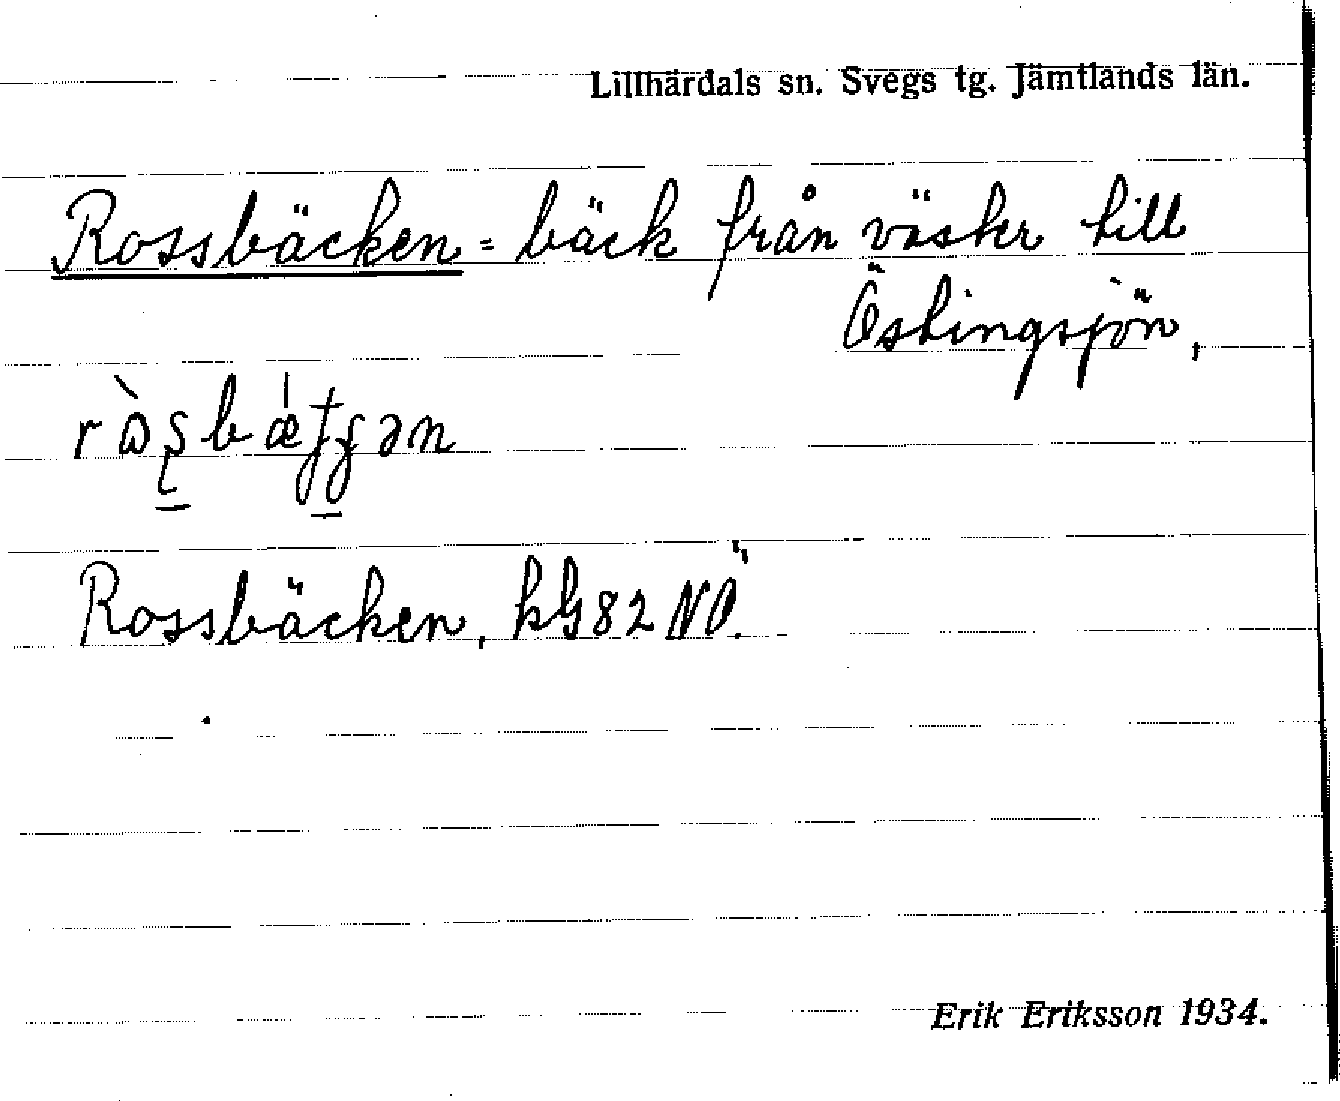 Lillhärdals sn. Svegs tg. Jämtlands län.
Rossbäcken = bäck från väster till
Östingsjön,
Rossbäcken, kG82 NÖ.
Erik Eriksson 1934.